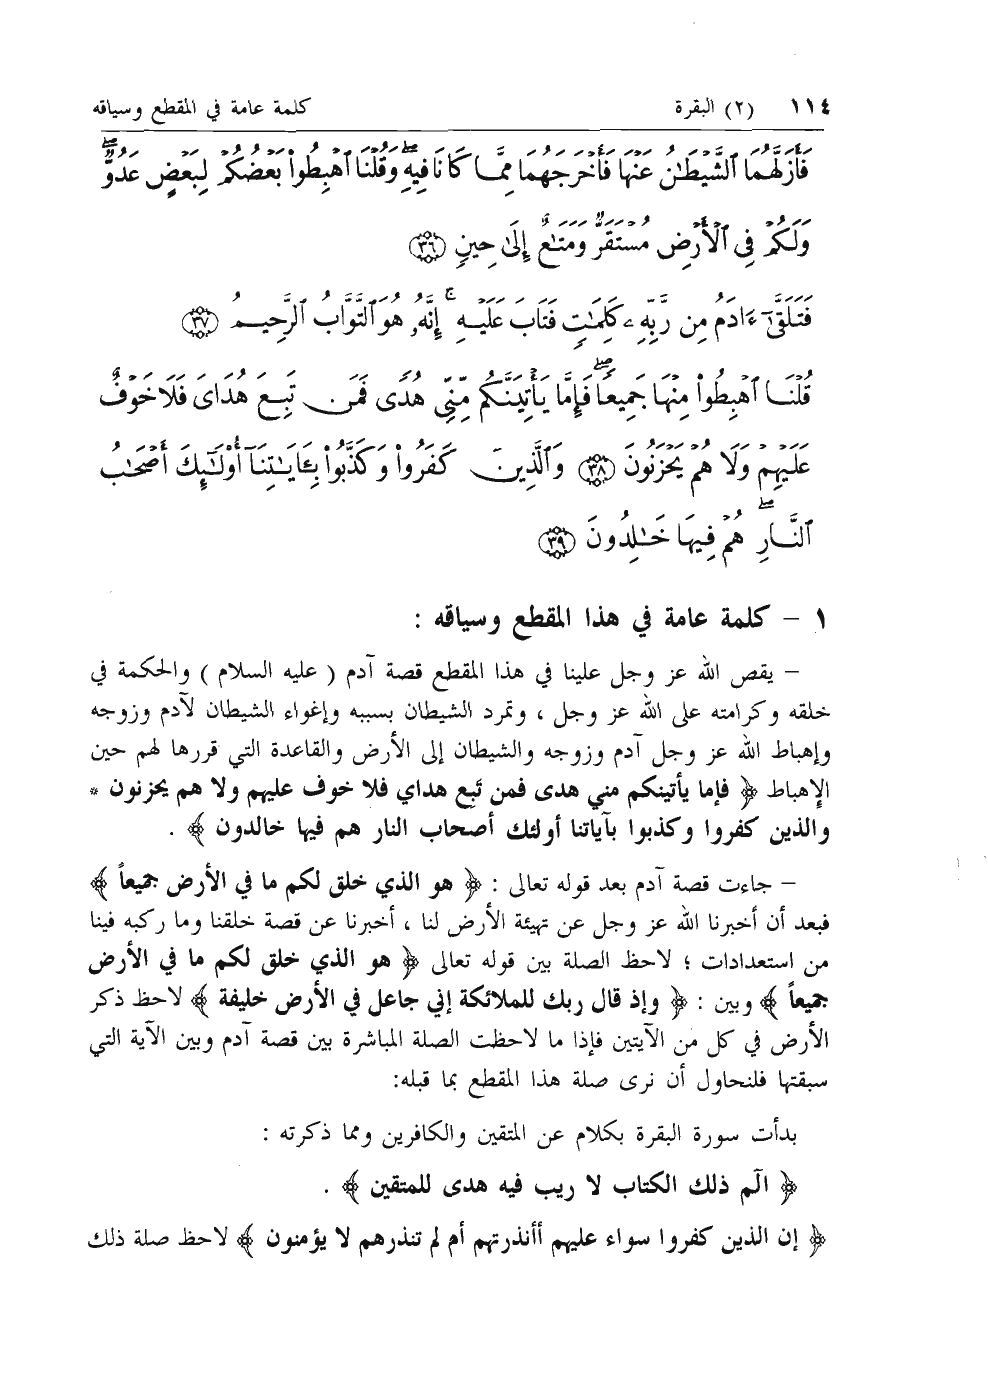 ١١٤ (٢) البقرة كلمة عامة في المقطع وسياقه
فَأَزَلَّهُمَا ٱلشَّيْطَٰنُ عَنْهَا فَأَخْرَجَهُمَا مِمَّا كَانَا فِيهِ ۖ وَقُلْنَا ٱهْبِطُوا۟ بَعْضُكُمْ لِبَعْضٍ عَدُوٌّ ۖ
وَلَكُمْ فِى ٱلْأَرْضِ مُسْتَقَرٌّ وَمَتَٰعٌ إِلَىٰ حِينٍ ﴿٣٦﴾
فَتَلَقَّىٰٓ ءَادَمُ مِن رَّبِّهِۦ كَلِمَٰتٍ فَتَابَ عَلَيْهِ ۚ إِنَّهُۥ هُوَ ٱلتَّوَّابُ ٱلرَّحِيمُ ﴿٣٧﴾
قُلْنَا ٱهْبِطُوا۟ مِنْهَا جَمِيعًا ۖ فَإِمَّا يَأْتِيَنَّكُم مِّنِّى هُدًى فَمَن تَبِعَ هُدَاىَ فَلَا خَوْفٌ
عَلَيْهِمْ وَلَا هُمْ يَحْزَنُونَ ﴿٣٨﴾ وَٱلَّذِينَ كَفَرُوا۟ وَكَذَّبُوا۟ بِـَٔايَٰتِنَآ أُو۟لَٰٓئِكَ أَصْحَٰبُ
ٱلنَّارِ ۖ هُمْ فِيهَا خَٰلِدُونَ ﴿٣٩﴾
١ – كلمة عامة في هذا المقطع وسياقه :
– يقص الله عز وجل علينا في هذا المقطع قصة آدم ( عليه السلام ) والحكمة في
خلقه وكرامته على الله عز وجل ، وتمرد الشيطان بسببه وإغواء الشيطان لآدم وزوجه
وإهباط الله عز وجل آدم وزوجه والشيطان إلى الأرض والقاعدة التي قررها لهم حين
الإهباط ﴿ فإما يأتينكم مني هدى فمن تبع هداي فلا خوف عليهم ولا هم يحزنون *
والذين كفروا وكذبوا بآياتنا أولئك أصحاب النار هم فيها خالدون ﴾ .
– جاءت قصة آدم بعد قوله تعالى : ﴿ هو الذي خلق لكم ما في الأرض جميعاً ﴾
فبعد أن أخبرنا الله عز وجل عن تهيئة الأرض لنا ، أخبرنا عن قصة خلقنا وما ركبه فينا
من استعدادات ؛ لاحظ الصلة بين قوله تعالى ﴿ هو الذي خلق لكم ما في الأرض
جميعاً ﴾ وبين : ﴿ وإذ قال ربك للملائكة إني جاعل في الأرض خليفة ﴾ لاحظ ذكر
الأرض في كل من الآيتين فإذا ما لاحظت الصلة المباشرة بين قصة آدم وبين الآية التي
سبقتها فلنحاول أن نرى صلة هذا المقطع بما قبله:
بدأت سورة البقرة بكلام عن المتقين والكافرين ومما ذكرته :
﴿ الّم ذلك الكتاب لا ريب فيه هدى للمتقين ﴾ .
﴿ إن الذين كفروا سواء عليهم أأنذرتهم أم لم تنذرهم لا يؤمنون ﴾ لاحظ صلة ذلك